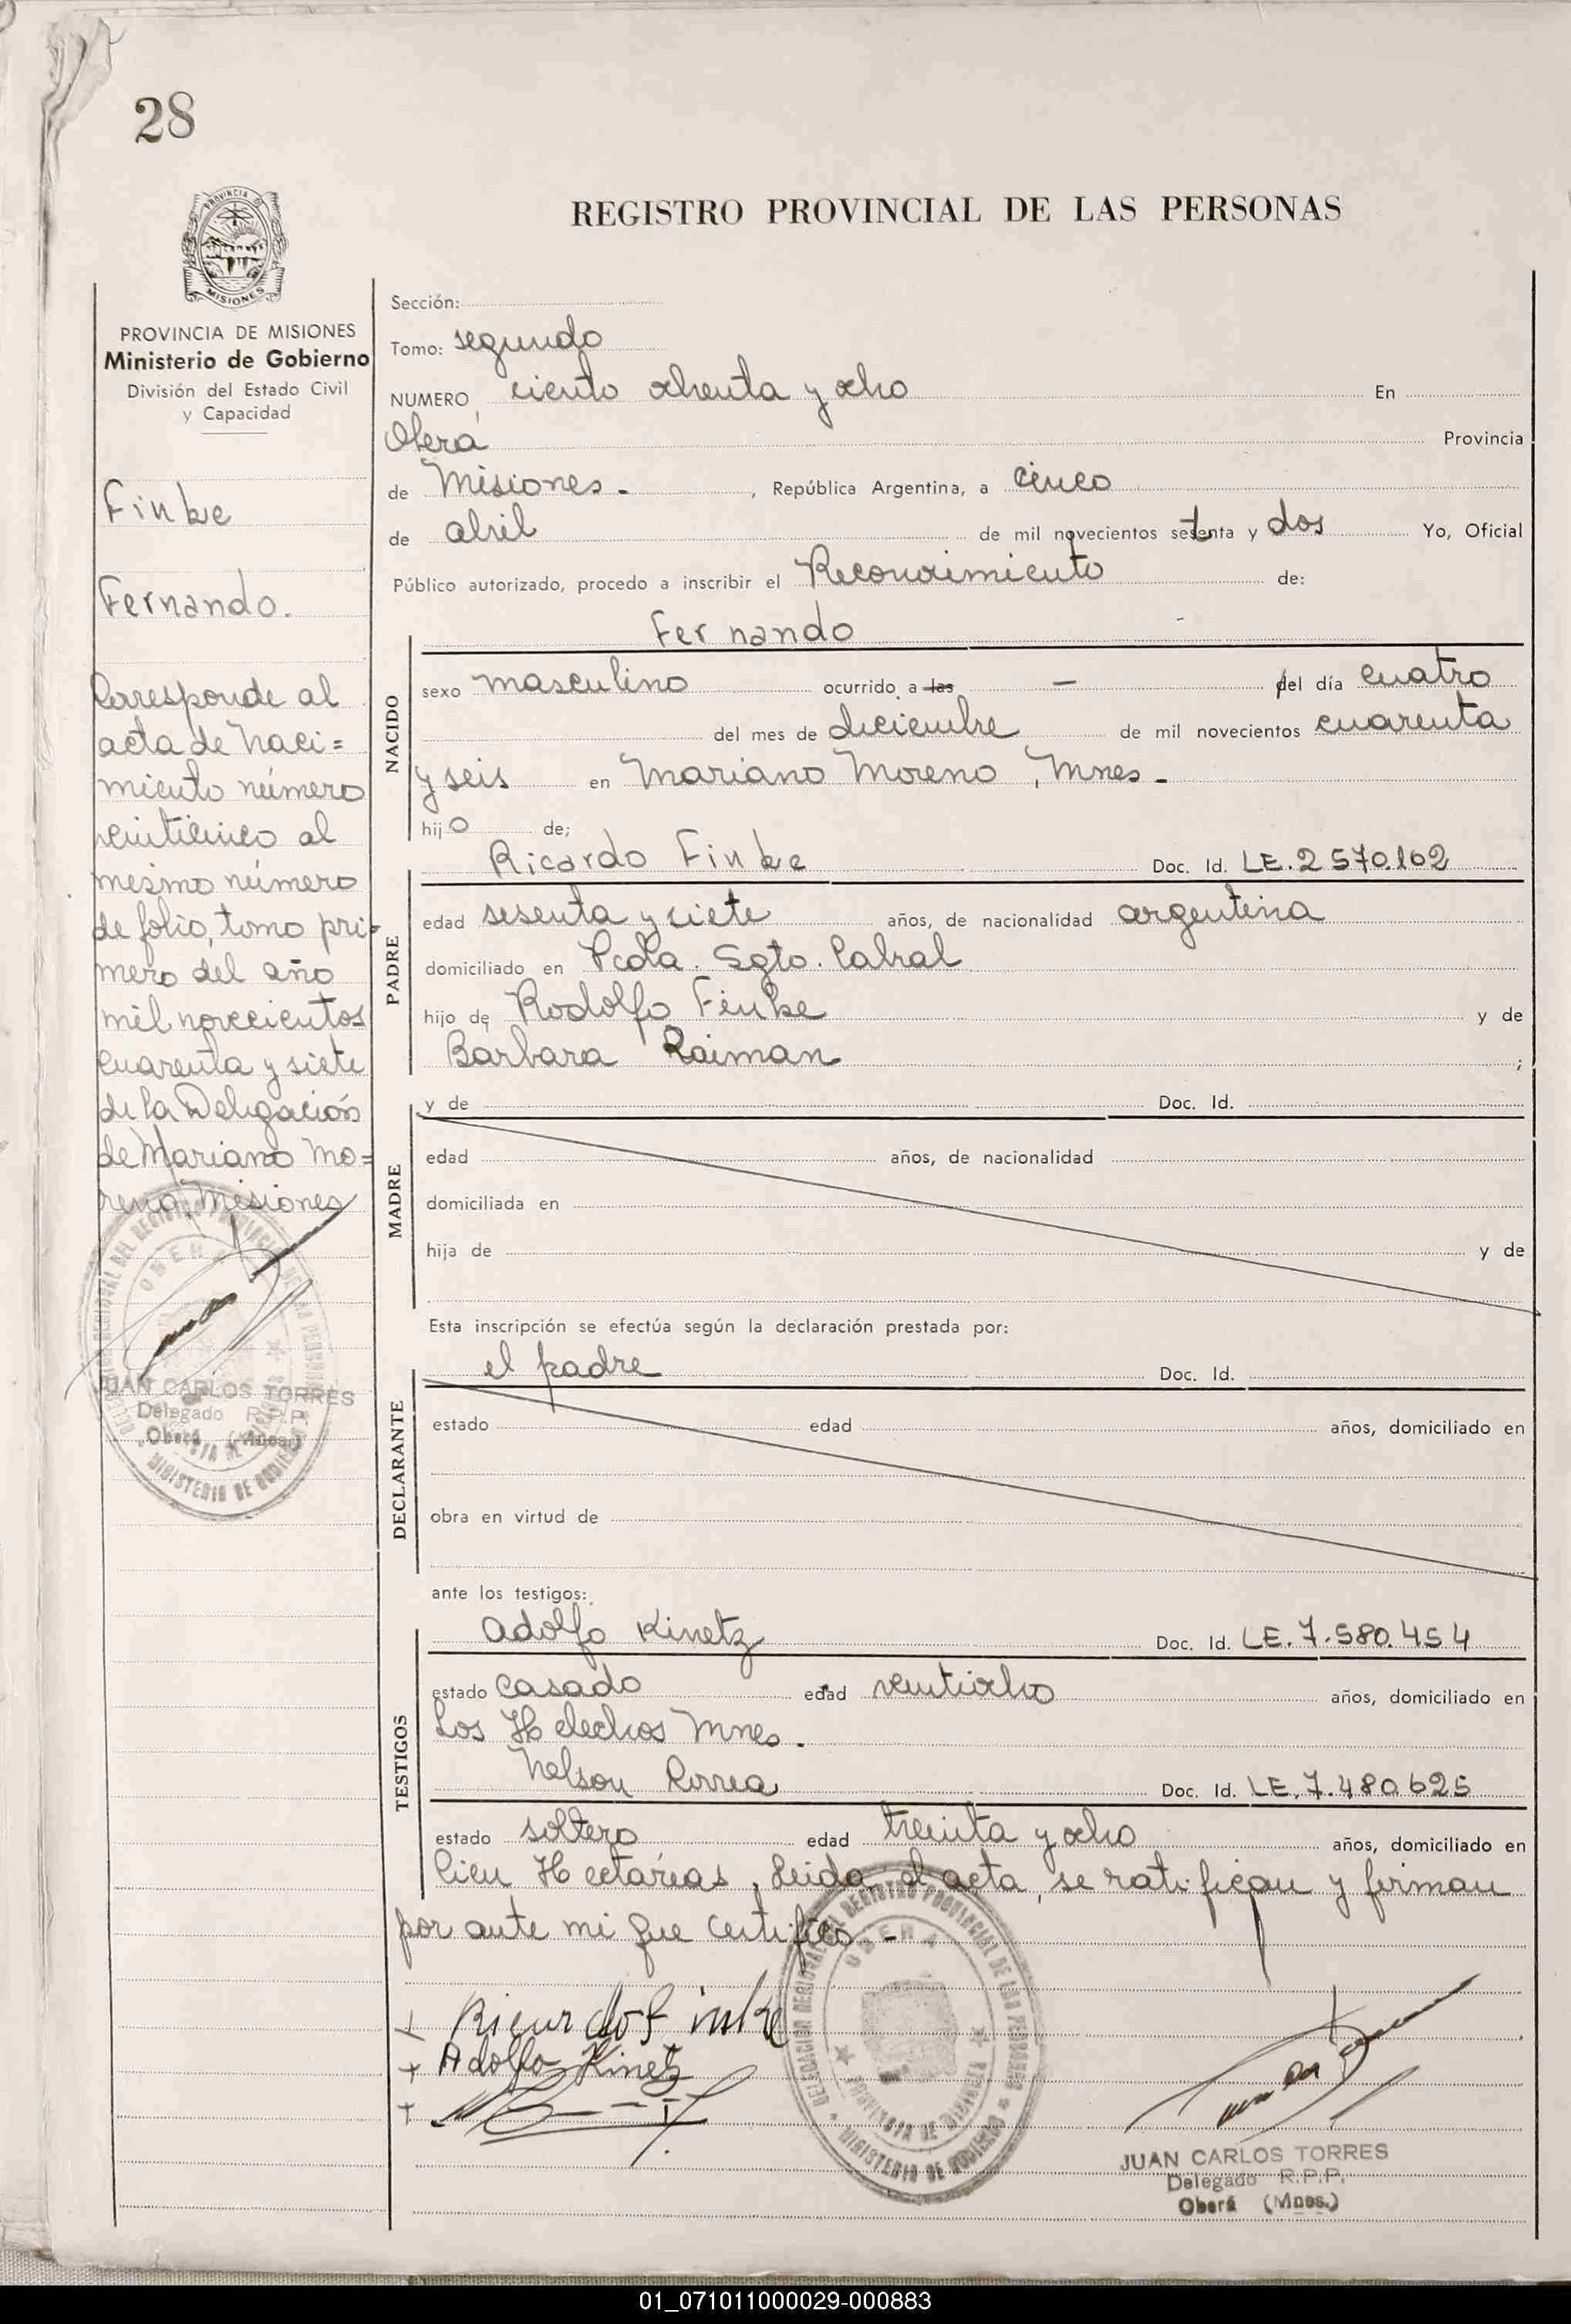 28
REGISTRO PROVINCIAL DE LAS PERSONAS
PROVINCIA DE MISIONES
Ministerio de Gobierno
División del Estado Civil
y Capacidad
Finke
Fernando.
Corresponde al
acta de Naci=
miento número
veinticinco al
mismo número
de folio, tomo pri=
mero del año
mil novecientos
cuarenta y siete
de la Delegación
de Mariano Mo=
reno, Misiones
JUAN CARLOS TORRES
Delegado R.P.P.
Oberá (Mnes.)
Sección:
Tomo: segundo
NUMERO ciento ochenta y ocho En
Oberá Provincia
de Misiones - , República Argentina, a cinco
de abril de mil novecientos setenta y dos Yo, Oficial
Público autorizado, procedo a inscribir el Reconocimiento de:
Fernando
NACIDO
sexo masculino ocurrido a las — del día cuatro
del mes de diciembre de mil novecientos cuarenta
y seis en Mariano Moreno, Mnes -
hijo de;
PADRE
Ricardo Finke Doc. Id. LE. 2 570.162
edad sesenta y siete años, de nacionalidad argentina
domiciliado en Pcda. Sgto. Cabral
hijo de Rodolfo Finke y de
Barbara Raiman ;
MADRE
y de Doc. Id.
edad años, de nacionalidad
domiciliada en
hija de y de
Esta inscripción se efectúa según la declaración prestada por:
DECLARANTE
el padre Doc. Id.
estado edad años, domiciliado en
obra en virtud de
ante los testigos:
TESTIGOS
Adolfo Kinetz Doc. Id. LE. 7.580.454
estado casado edad veintiocho años, domiciliado en
Los Helechos Mnes.
Nelson Correa Doc. Id. LE. 7.480.625
estado soltero edad treinta y ocho años, domiciliado en
Cien Hectáreas, Leida el acta, se ratifican y firman
por ante mi que certifico -
+ Ricardo Finke
+ Adolfo Kinetz
+
DELEGACION REGIONAL DEL REGISTRO PROVINCIAL DE LAS PERSONAS
OBERA
PROVINCIA DE MISIONES
MINISTERIO DE GOBIERNO
JUAN CARLOS TORRES
Delegado R.P.P.
Oberá (Mnes.)
01_071011000029-000883